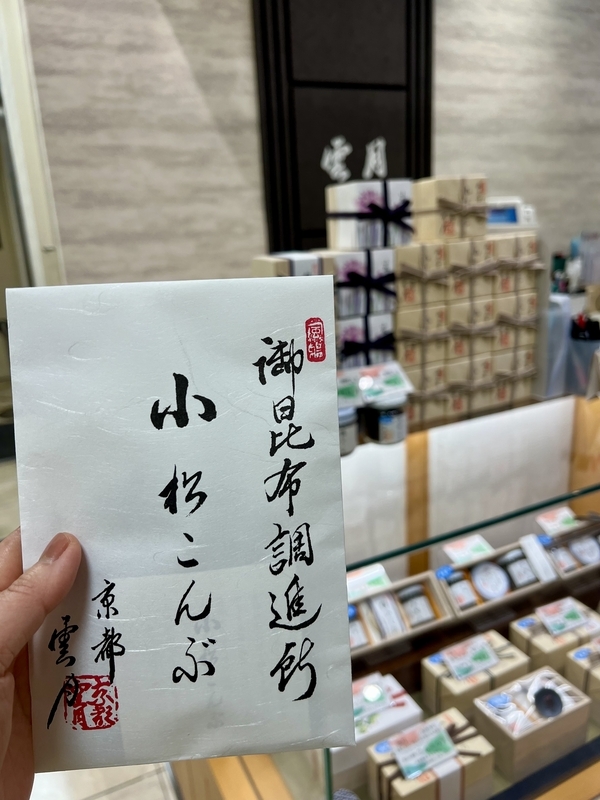 雲月
御昆布調進所
小松こんぶ
京都
雲月